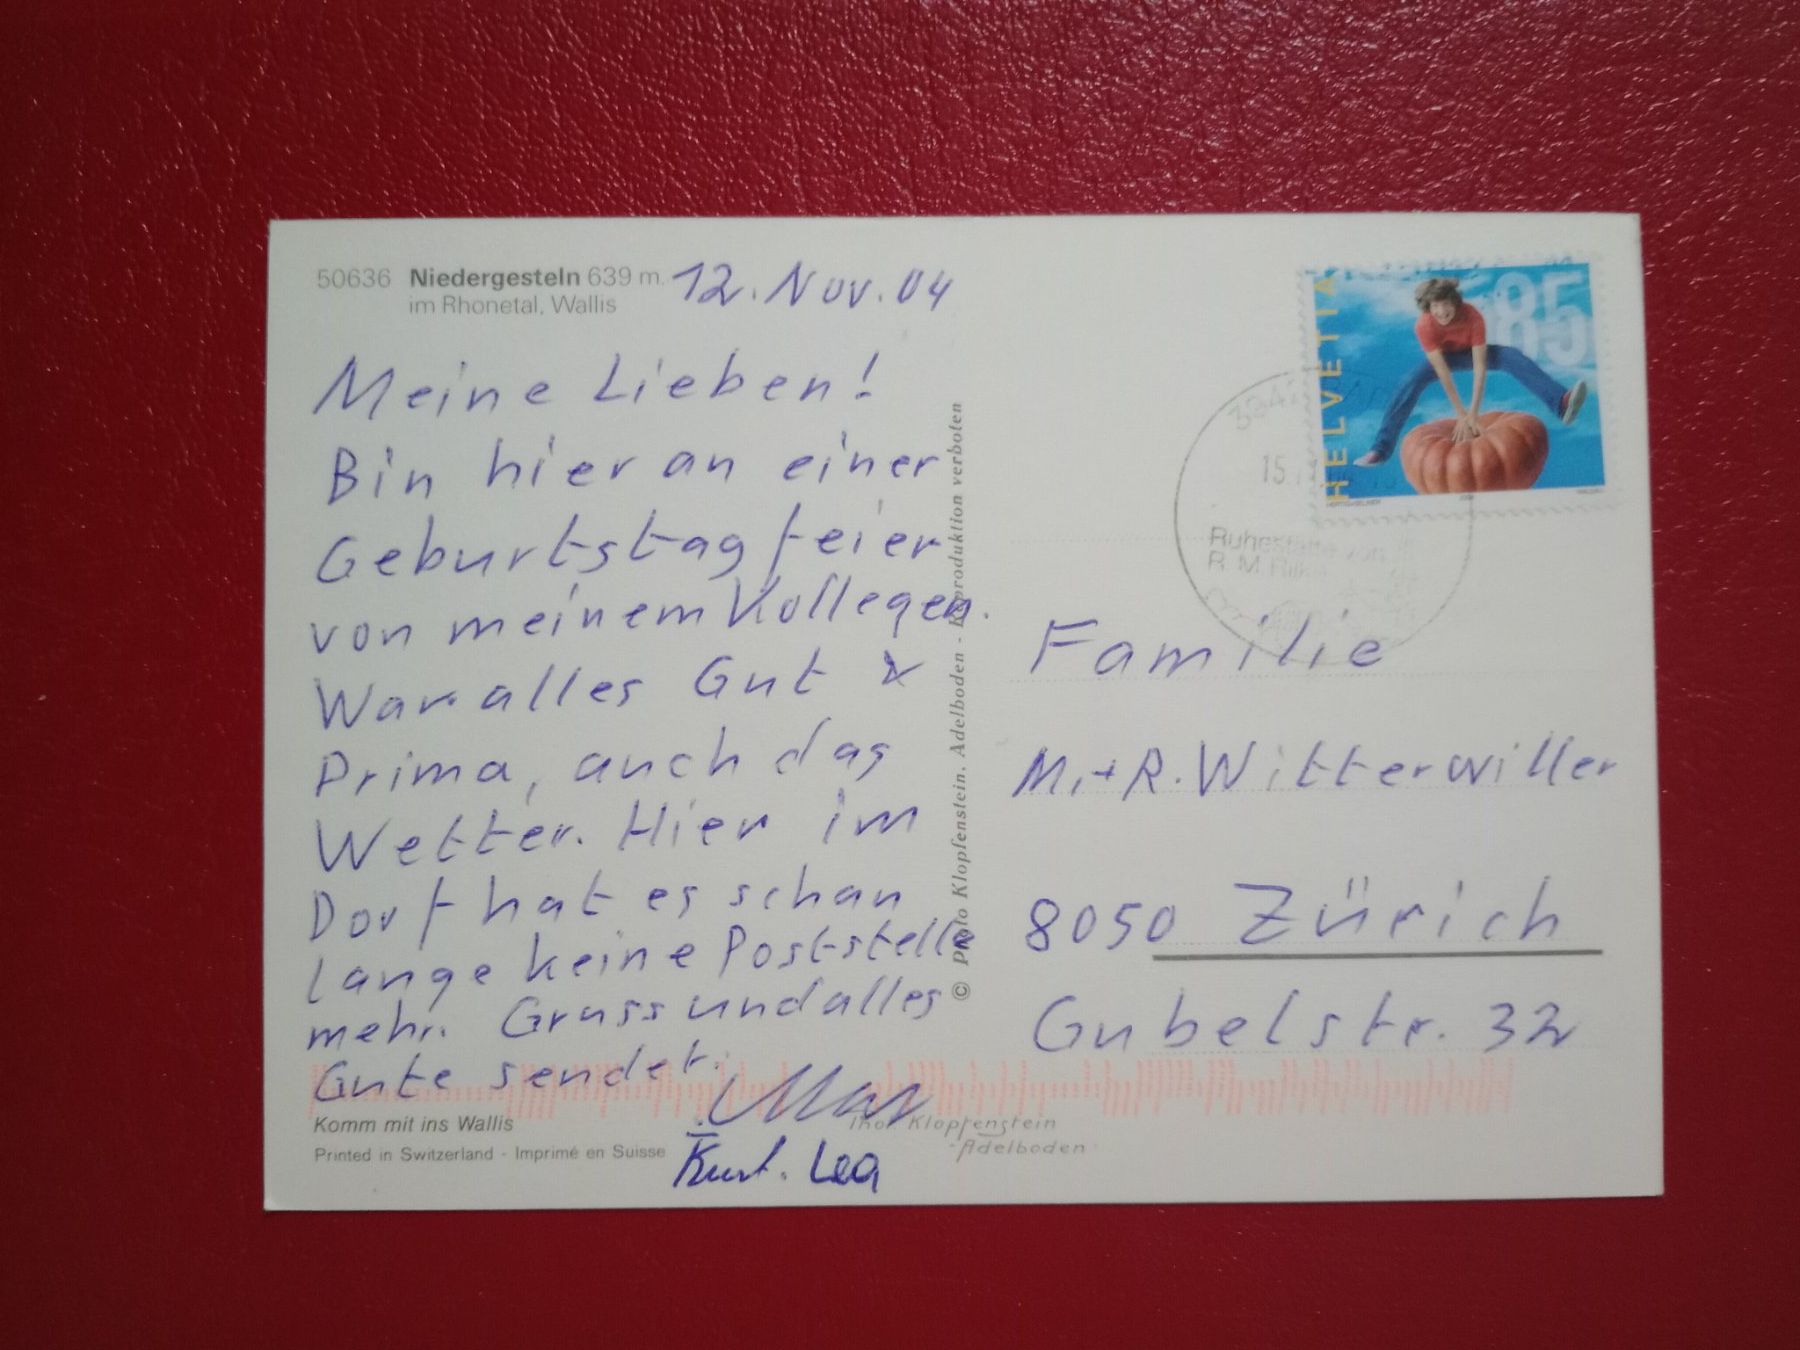 50636 Niedergesteln 639 m.
im Rhonetal, Wallis
12. Nov. 04
Meine Lieben!
Bin hier an einer
Geburtstagfeier
von meinem Kollegen.
War alles Gut &
Prima, auch das
Wetter. Hier im
Dorf hat es schon
lange keine Poststelle
mehr. Gruss und alles
Gute sendet:
Max
Kurt. Lea
Komm mit ins Wallis
Printed in Switzerland - Imprimé en Suisse
Klopfenstein
-Adelboden-
© Photo Klopfenstein, Adelboden - Reproduktion verboten
HELVETIA
85
15.
Ruhestätte von
R. M. Rilke
Familie
M.+R. Witterwiller
8050 Zürich
Gubelstr. 32